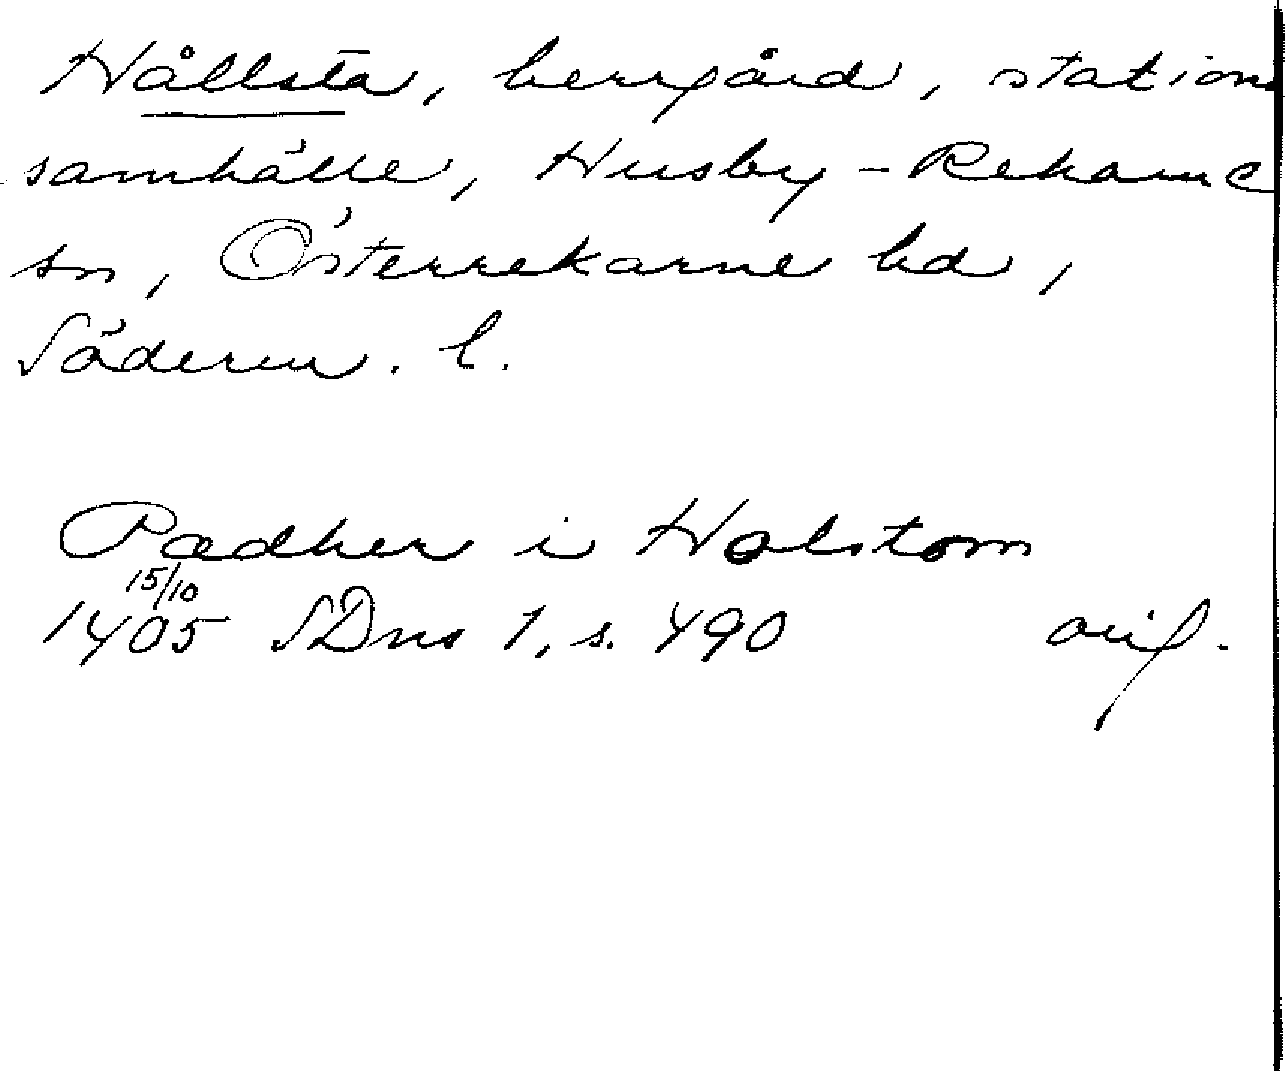 Hållsta, herrgård, stations
samhälle, Husby-Rekarne
sn, Österrekarne hd,
Söderm. l.
Pædher i Holstom
15/10
1405 SDns 1, s. 490 avif.